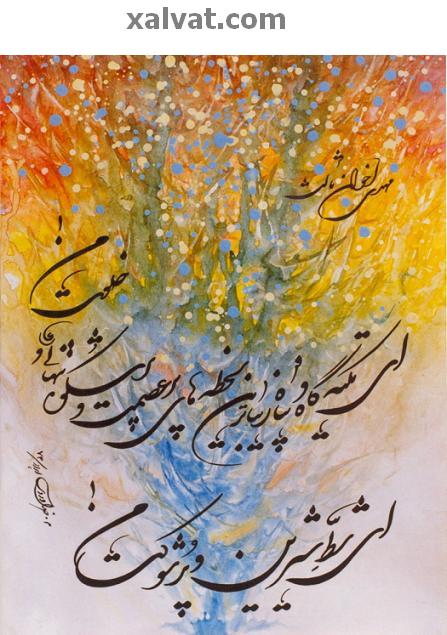 xalvat.com
مهدی اخوان ثالث
ای تکیه گاه و پناه زیباترین لحظه های پرعصمت و پرشکوه تنهائی و
خلوت من !
ای شطِّ شیرین و پُرشوکت من !